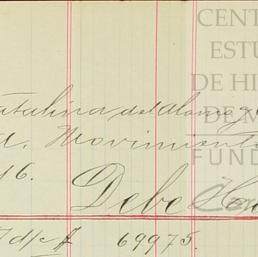 CENT
ESTU
DE HI
DE M
FUND
atalina del Alamo y
d. Movimiento
16.
Debe
69975.